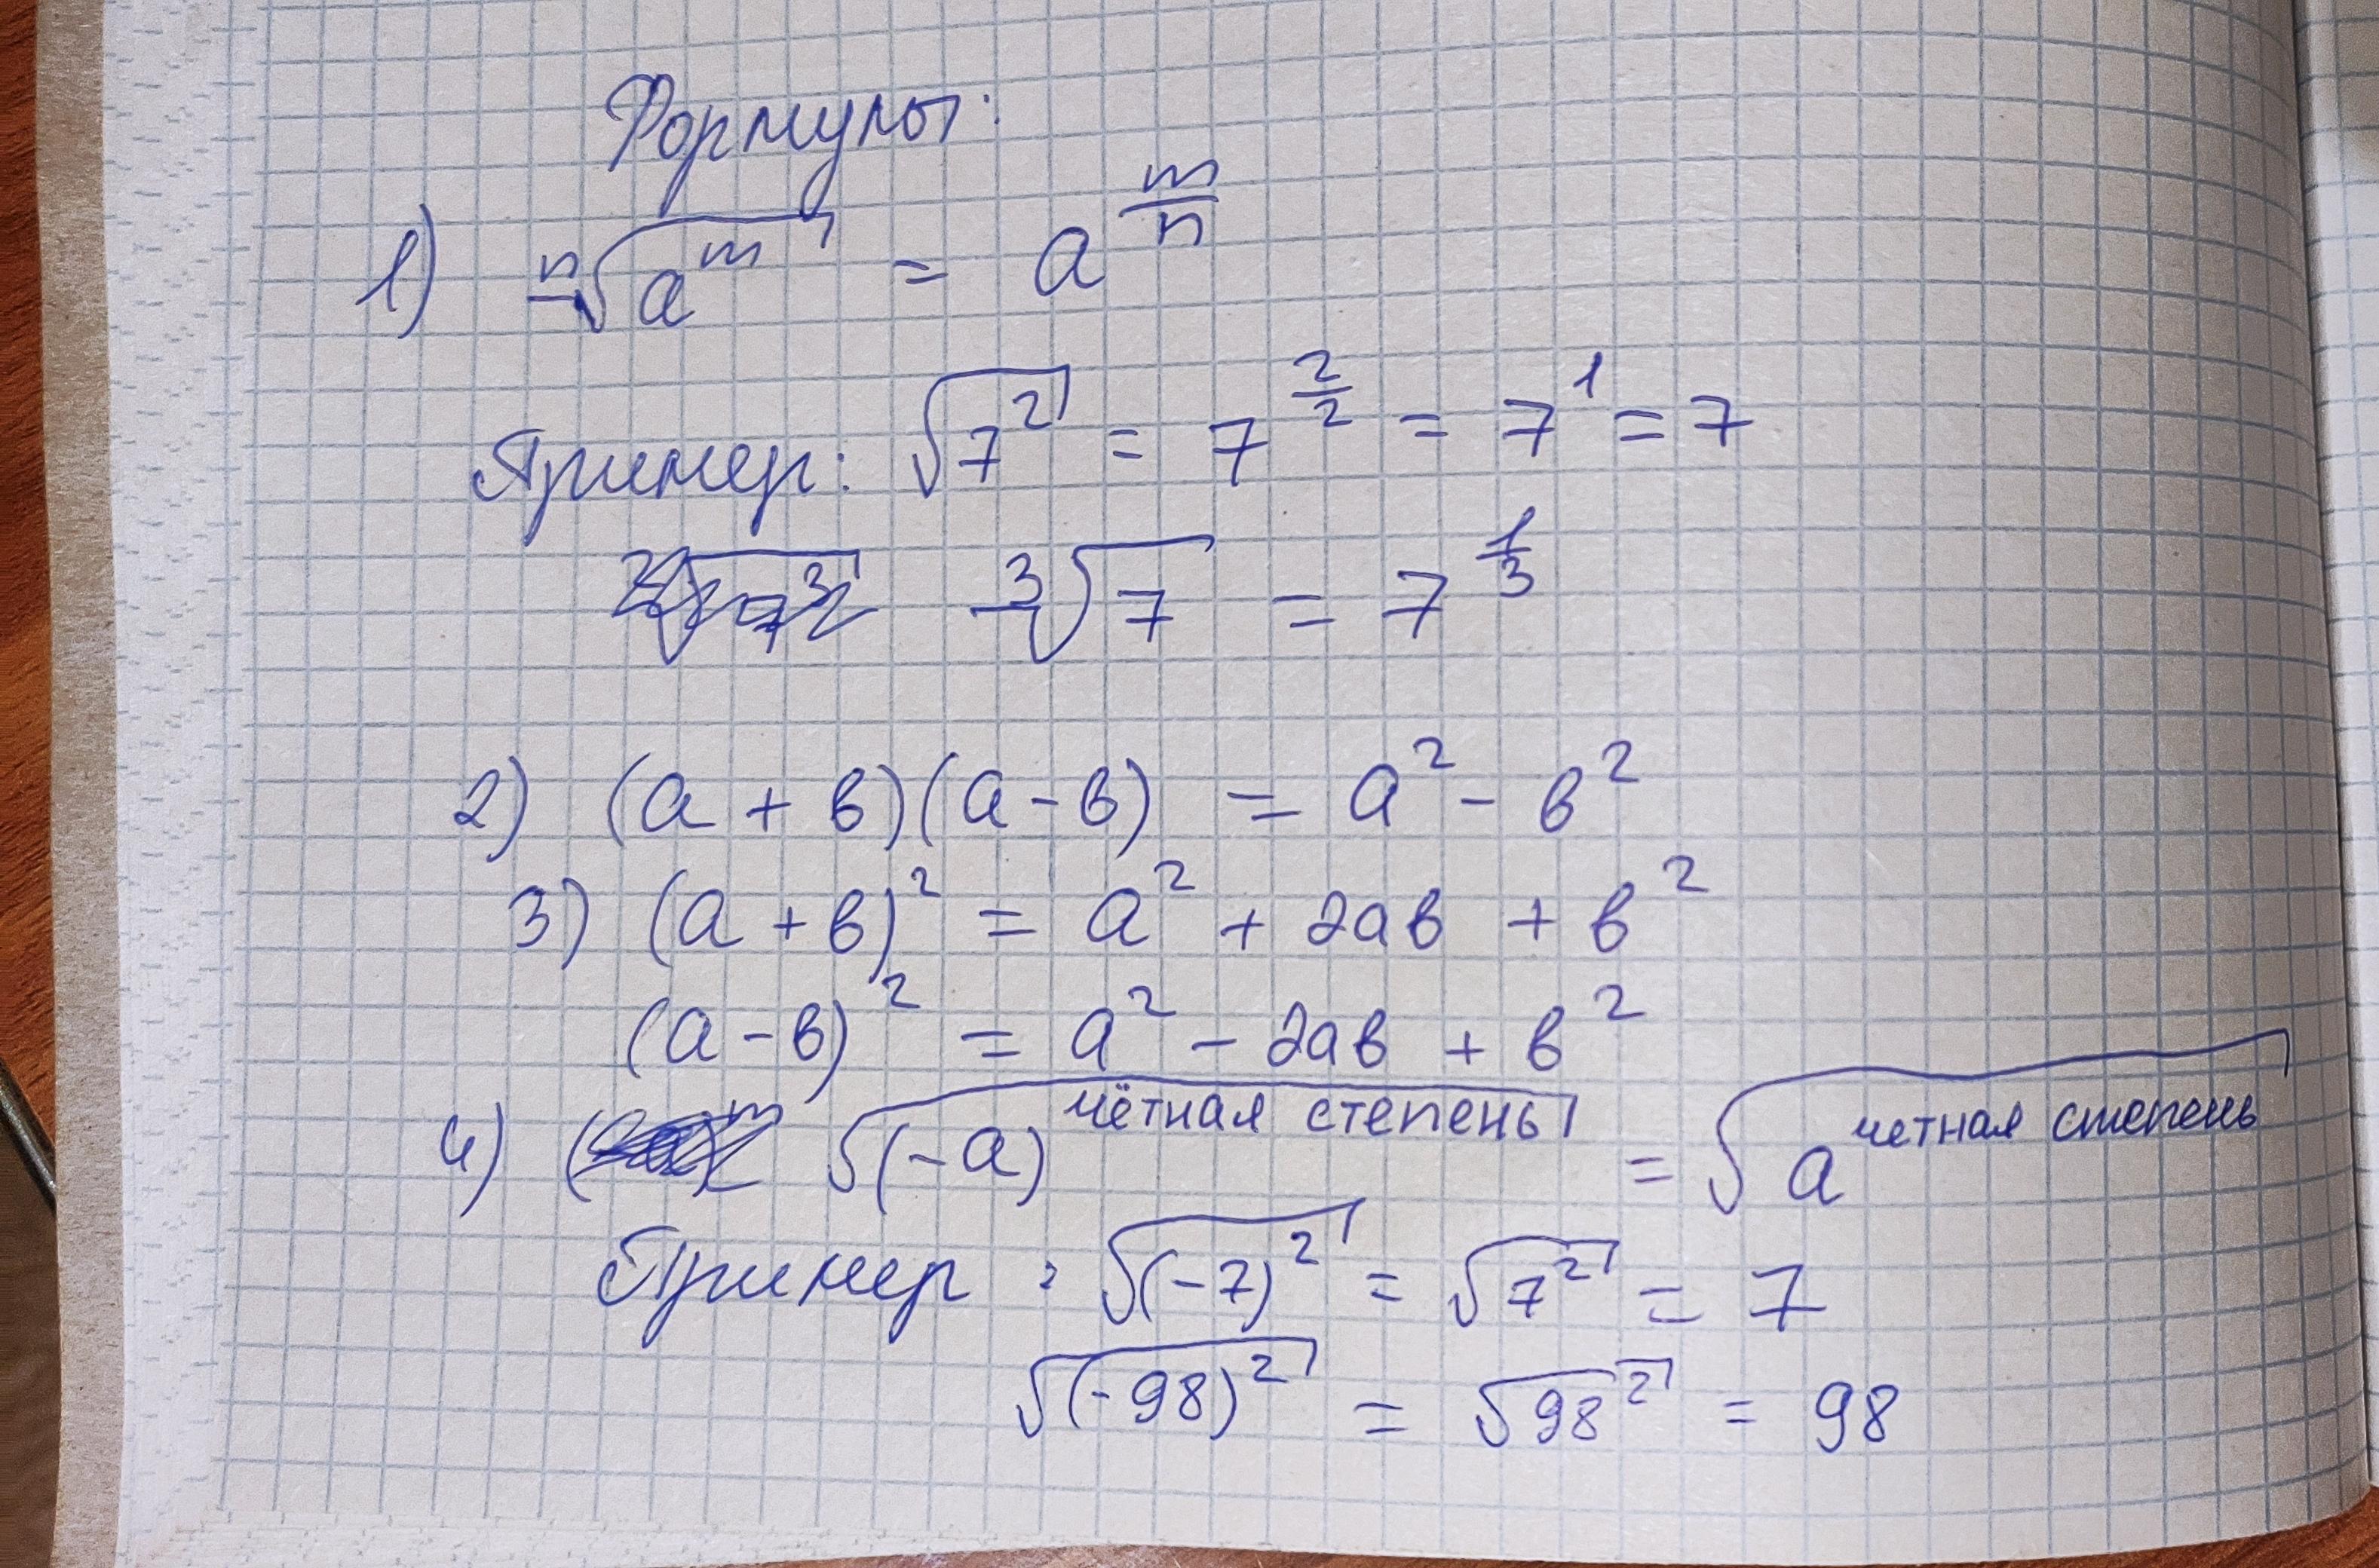 Формулы:
1) ⁿ√(a^m) = a^(m/n)
Пример: √(7²) = 7^(2/2) = 7¹ = 7
³√7 = 7^(1/3)
2) (а + в)(а - в) = а² - в²
3) (а + в)² = а² + 2ав + в²
(а - в)² = а² - 2ав + в²
4) √((-а)^чётная степень) = √(а^четная степень)
Пример: √((-7)²) = √(7²) = 7
√((-98)²) = √(98²) = 98